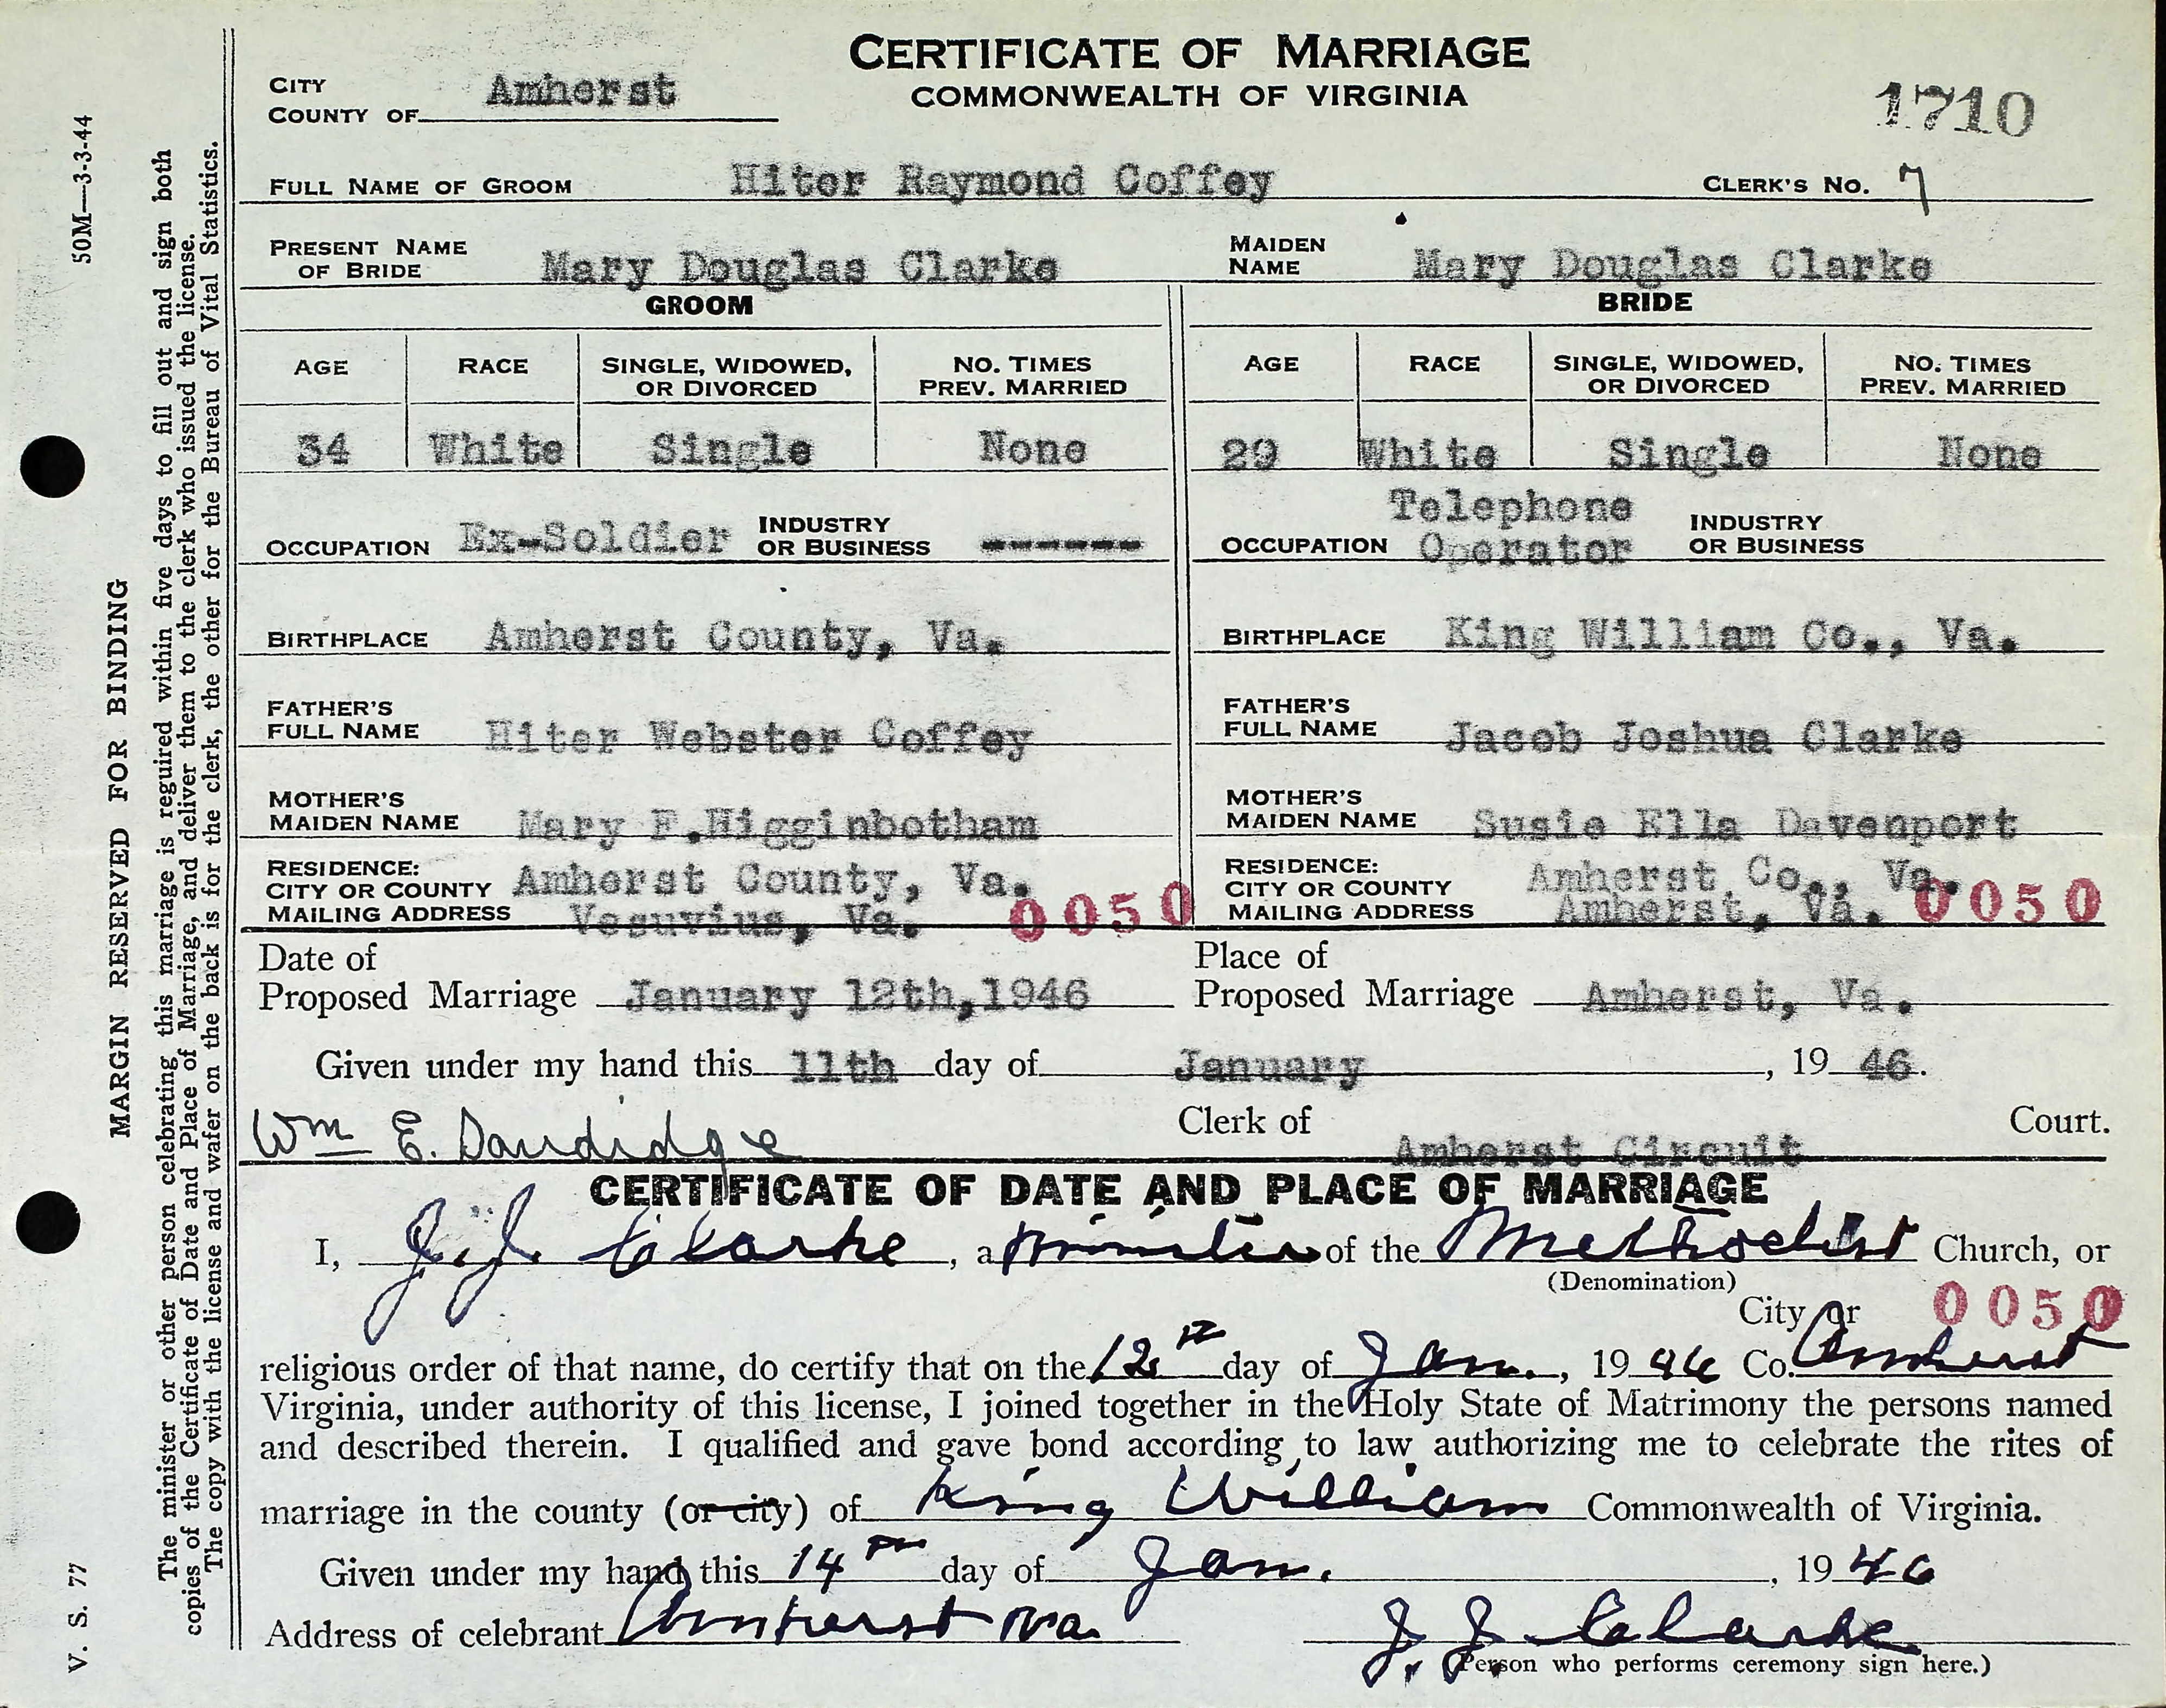 CERTIFICATE OF MARRIAGE
COMMONWEALTH OF VIRGINIA
CITY
COUNTY OF Amherst
1710
FULL NAME OF GROOM Hiter Raymond Coffey CLERK'S NO. 7
PRESENT NAME OF BRIDE Mary Douglas Clarke MAIDEN NAME Mary Douglas Clarke
GROOM BRIDE
AGE RACE SINGLE, WIDOWED, OR DIVORCED NO. TIMES PREV. MARRIED AGE RACE SINGLE, WIDOWED, OR DIVORCED NO. TIMES PREV. MARRIED
34 White Single None 29 White Single None
OCCUPATION Ex-Soldier INDUSTRY OR BUSINESS ------ OCCUPATION Telephone Operator INDUSTRY OR BUSINESS
BIRTHPLACE Amherst County, Va. BIRTHPLACE King William Co., Va.
FATHER'S FULL NAME Hiter Webster Coffey FATHER'S FULL NAME Jacob Joshua Clarke
MOTHER'S MAIDEN NAME Mary F.Higginbotham MOTHER'S MAIDEN NAME Susie Ella Davenport
RESIDENCE: RESIDENCE:
CITY OR COUNTY Amherst County, Va. CITY OR COUNTY Amherst Co., Va.
MAILING ADDRESS Vesuvius, Va. 0050 MAILING ADDRESS Amherst, Va. 0050
Date of Proposed Marriage January 12th,1946 Place of Proposed Marriage Amherst, Va.
Given under my hand this 11th day of January, 19 46.
Wm E. Dandidge Clerk of Amherst Circuit Court.
CERTIFICATE OF DATE AND PLACE OF MARRIAGE
I, J. J. Clarke, a minister of the Methodist Church, or
(Denomination)
City or 0050
religious order of that name, do certify that on the 12th day of Jan., 19 46 Co. Amherst
Virginia, under authority of this license, I joined together in the Holy State of Matrimony the persons named
and described therein. I qualified and gave bond according to law authorizing me to celebrate the rites of
marriage in the county (or city) of King William Commonwealth of Virginia.
Given under my hand this 14th day of Jan., 19 46
Address of celebrant Amherst Va. J. J. Clarke
(Person who performs ceremony sign here.)
50M—3-3-44
MARGIN RESERVED FOR BINDING
V. S. 77
The minister or other person celebrating this marriage is reguired within five days to fill out and sign both
copies of the Certificate of Date and Place of Marriage, and deliver them to the clerk who issued the license.
The copy with the license and wafer on the back is for the clerk, the other for the Bureau of Vital Statistics.